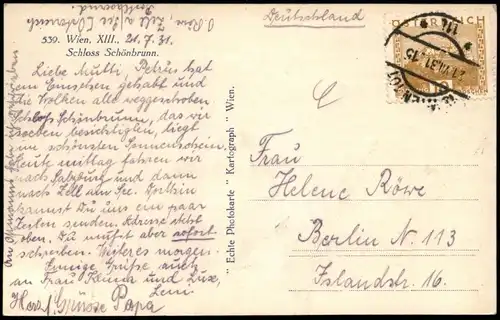 O. Röwe, Zell a. See (Österreich
postlagernd.
539. Wien, XIII., 21.7.31.
Schloss Schönbrunn.
Liebe Mutti, Petrus hat
ein Einsehen gehabt und
die Wolken alle weggeschoben.
Schloß Schönbrunn, das wir
soeben besichtigten, liegt
im schönsten Sonnenschein.
Heute mittag fahren wir
nach Salzburg und dann
nach Zell am See. Dorthin
kannst Du uns ein paar
Zeilen senden. Adresse steht
oben. Du mußt aber sofort
schreiben. Weiteres morgen.
Innige Grüße auch
an Frau Renner und Luxe,
Leni
Herzl. Grüsse Papa
An habe ich geschrieben
"Echte Photokarte" Kartograph "Wien.
Deutschland
ÖSTERREICH
Frau
Helene Röwe
Berlin N. 113
Islandstr. 16.